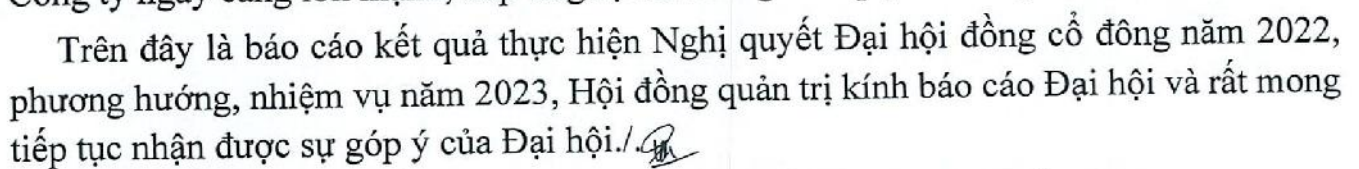 Trên đây là báo cáo kết quả thực hiện Nghị quyết Đại hội đồng cổ đông năm 2022,
phương hướng, nhiệm vụ năm 2023, Hội đồng quản trị kính báo cáo Đại hội và rất mong
tiếp tục nhận được sự góp ý của Đại hội./.